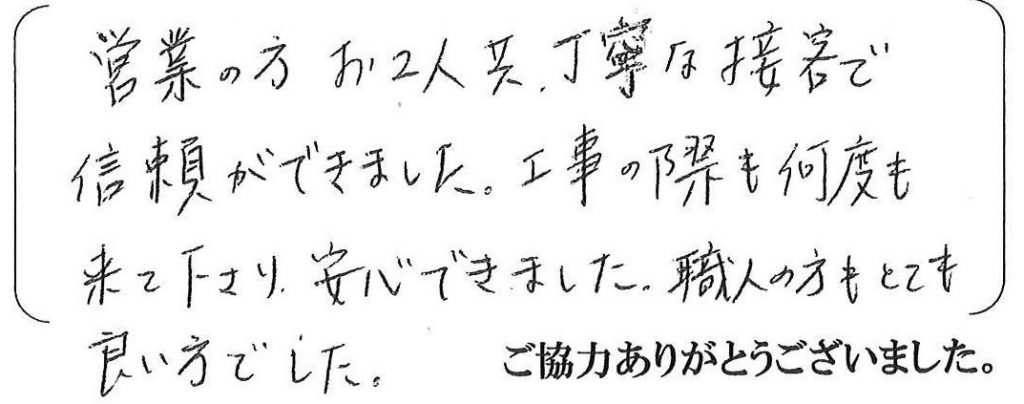 営業の方 お2人共、丁寧な接客で
信頼ができました。工事の際も何度も
来て下さり、安心できました。職人の方もとても
良い方でした。
ご協力ありがとうございました。